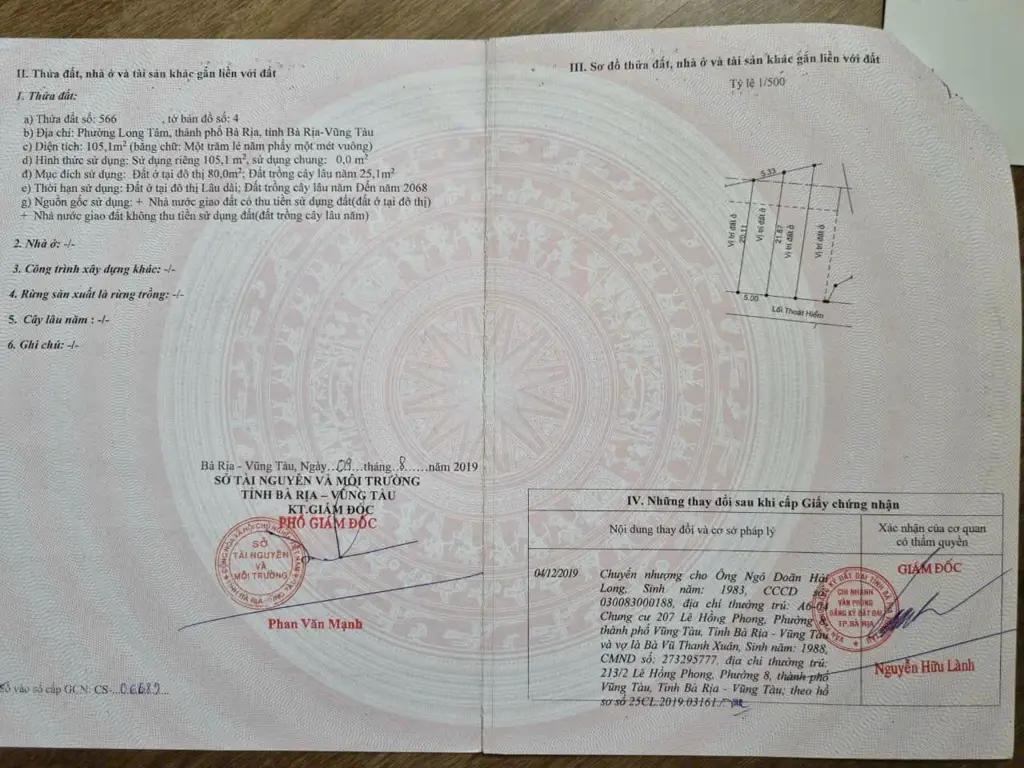 II. Thửa đất, nhà ở và tài sản khác gắn liền với đất
1. Thửa đất:
a) Thửa đất số: 566 , tờ bản đồ số: 4
b) Địa chỉ: Phường Long Tâm, thành phố Bà Rịa, tỉnh Bà Rịa-Vũng Tàu
c) Diện tích: 105,1m² (bằng chữ: Một trăm lẻ năm phẩy một mét vuông)
d) Hình thức sử dụng: Sử dụng riêng 105,1 m², sử dụng chung: 0,0 m²
đ) Mục đích sử dụng: Đất ở tại đô thị 80,0m²; Đất trồng cây lâu năm 25,1m²
e) Thời hạn sử dụng: Đất ở tại đô thị Lâu dài; Đất trồng cây lâu năm Đến năm 2068
g) Nguồn gốc sử dụng: + Nhà nước giao đất có thu tiền sử dụng đất(đất ở tại đô thị)
+ Nhà nước giao đất không thu tiền sử dụng đất(đất trồng cây lâu năm)
2. Nhà ở: -/-
3. Công trình xây dựng khác: -/-
4. Rừng sản xuất là rừng trồng: -/-
5. Cây lâu năm : -/-
6. Ghi chú: -/-
Bà Rịa - Vũng Tàu, Ngày..09...tháng..8......năm 2019
SỞ TÀI NGUYÊN VÀ MÔI TRƯỜNG
TỈNH BÀ RỊA – VŨNG TÀU
KT.GIÁM ĐỐC
PHÓ GIÁM ĐỐC
SỞ
TÀI NGUYÊN
VÀ
MÔI TRƯỜNG
Phan Văn Mạnh
Số vào sổ cấp GCN: CS-..06689...
III. Sơ đồ thửa đất, nhà ở và tài sản khác gắn liền với đất
Tỷ lệ 1/500
5.33
Vị trí đất ở
20.11
Vị trí đất ở
21.87
Vị trí đất ở
Vị trí đất ở
5.00
Lối Thoát Hiểm
IV. Những thay đổi sau khi cấp Giấy chứng nhận
Nội dung thay đổi và cơ sở pháp lý
Xác nhận của cơ quan
có thẩm quyền
04/12/2019
Chuyển nhượng cho Ông Ngô Doãn Hải
Long, Sinh năm: 1983, CCCD số:
030083000188, địa chỉ thường trú: A6-04
Chung cư 207 Lê Hồng Phong, Phường 8,
thành phố Vũng Tàu, Tỉnh Bà Rịa - Vũng Tàu
và vợ là Bà Vũ Thanh Xuân, Sinh năm: 1988,
CMND số: 273295777, địa chỉ thường trú:
213/2 Lê Hồng Phong, Phường 8, thành phố
Vũng Tàu, Tỉnh Bà Rịa - Vũng Tàu; theo hồ
sơ số 25CL.2019.03161./
GIÁM ĐỐC
CHI NHÁNH
VĂN PHÒNG
ĐĂNG KÝ ĐẤT ĐAI
TP.BÀ RỊA
Nguyễn Hữu Lành